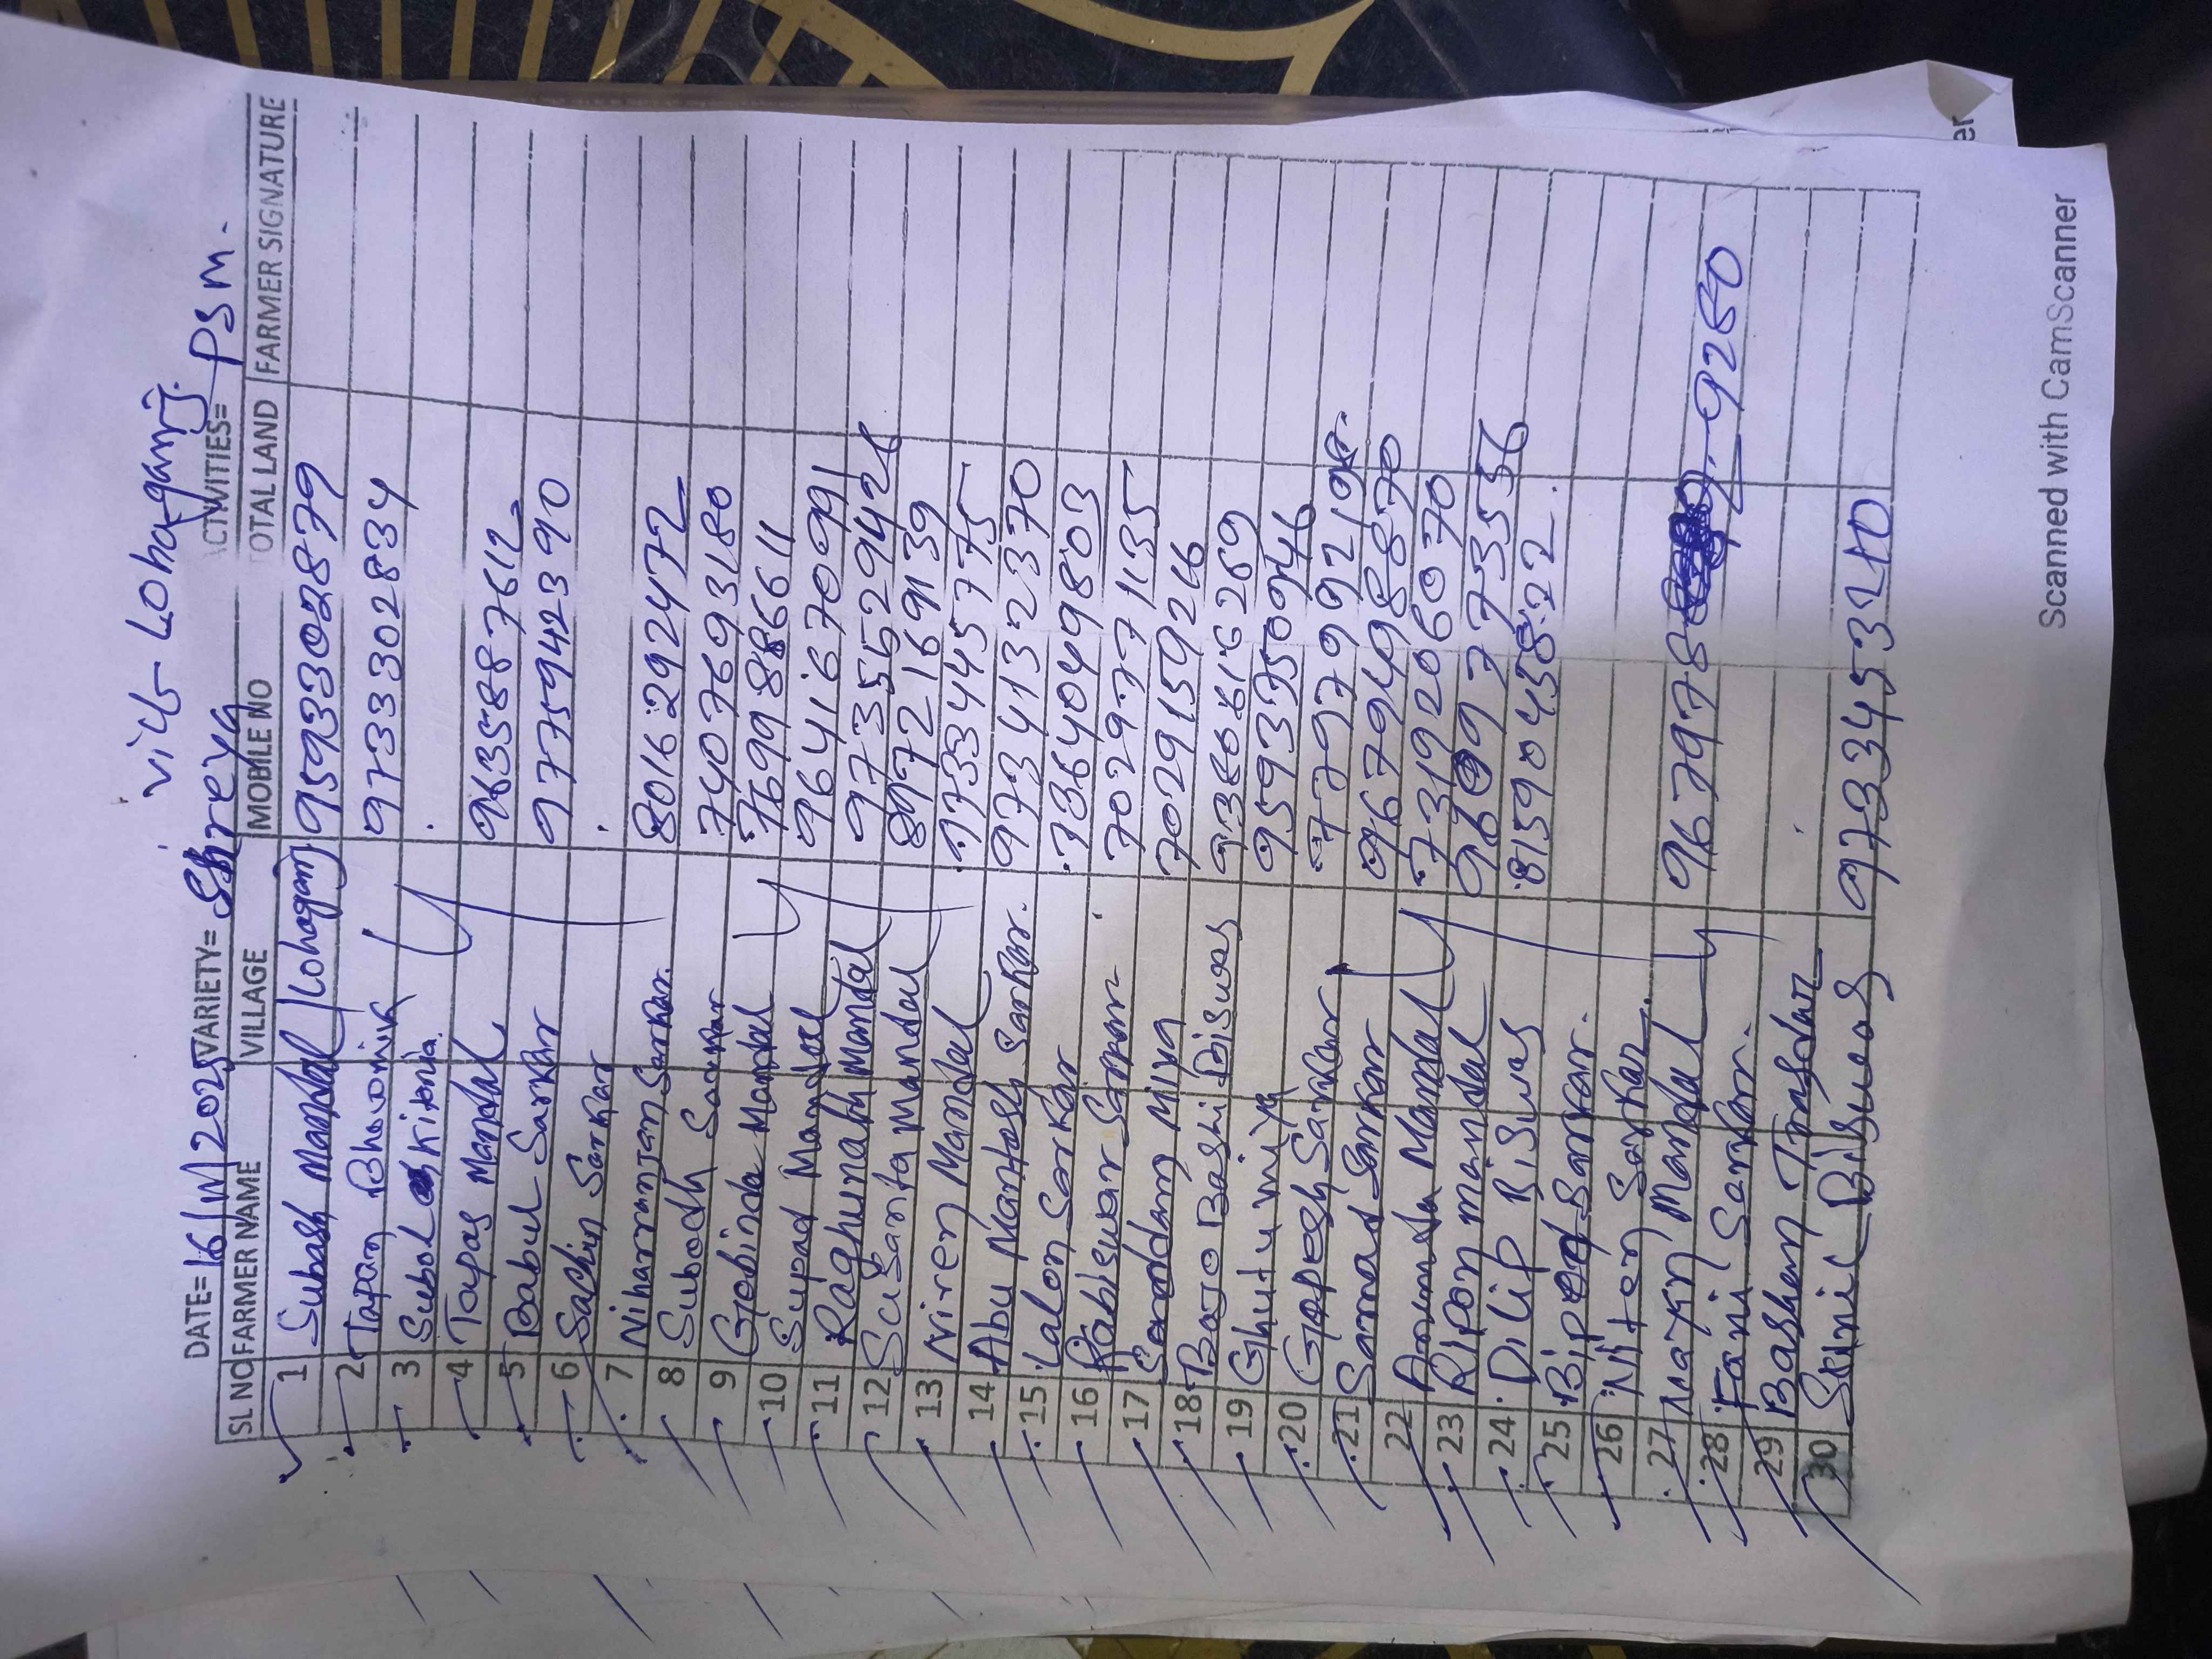 Vill- Lohaganj.
DATE= 16/11/2025 VARIETY= Shreya CTIVITIES= PSM.
SL NO FARMER NAME VILLAGE MOBILE NO OTAL LAND FARMER SIGNATURE
1 Subash Mandal Lohaganj 9593302879
2 Tapan Bhowmik 9733302834
3 Subol Kirtonia
4 Tapas Mandal 9635887612
5 Babul Sarkar 9775942390
6 Sachin Sarkar
7 Niharranjan Sarkar 8016292472
8 Subodh Sarkar 7407693180
9 Gobinda Mondal 7699888611
10 Supad Mandal 9641670991
11 Raghunath Mandal
12 Susanta Mandal 8972169139
13 Niren Mandal 9733445775
14 Abu Mantosh Sarkar. 9734132370
15 Lalon Sarkar 7364049803
16 Rabiswar Sarkar 7029771135
17 Saddam Miya 7029159216
18 Bajo Bashi Biswas
19 Ghutu miya 9593750946
20 Gopesh Sarkar
21 Samad Sarkar 9679498870
22 Mandal 7319206070
23 Ripon mandal
24 Dilip Biswas 8159045822.
25 Sarkar.
26 Niten Sarkar.
27 Mandal 967978 9280
28 Fani Sarkar.
29 Bashan
30 Biswas 9733453210
Scanned with CamScanner
er